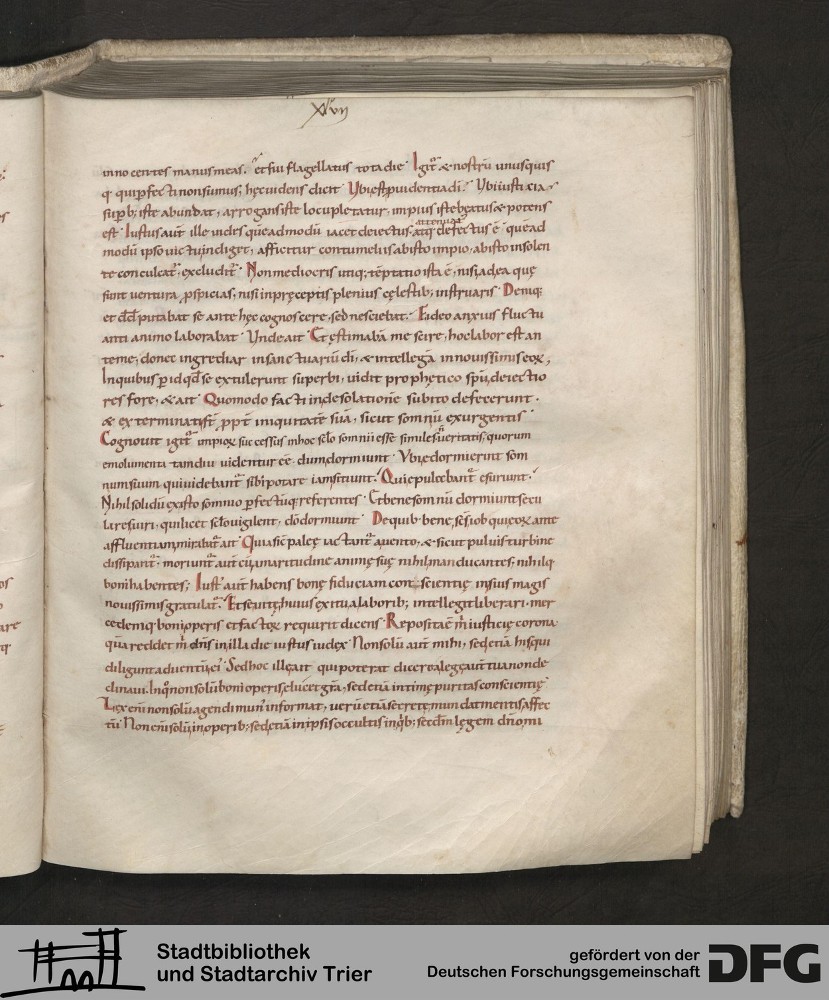 XXVII
innocentes manus meas. et fui flagellatus tota die. Igit̄ & nostrū unusquis
q; qui pfecti non sumus, hęc uidens dicit. Ubi est puidentia di? Ubi iusticia?
Supb; iste abundat, arrogans iste locupletatur, impius iste beatus & potens
attenuat'
est. Iustus aut̄ ille uides quēadmodū iacet deiectus. atq; defectus ē. quēad
modū ipso uictu indiget, afficitur contumeliis ab isto impio, ab isto insolen
te conculcat̄, excludit̄. Non mediocris utiq; tēptatio ista ē, nisi ad ea quę
sunt uentura pspicias, nisi in pręceptis plenius cęlestib; instruaris. Deniq;
et dd putabat se ante hęc cognoscere, sed nesciebat. Et ideo anxius fluctu
anti animo laborabat. Unde ait. Et estimabā me scire, hoc labor est an
te me, donec ingrediar in sanctuariū di, & intellegā in nouissimis eoꝝ,
In quibus p id qd se extulerunt superbi, uidit prophetico spū, deiectio
res fore, & ait. Quomodo facti in desolatione subito defecerunt.
& exterminati st ppt iniquitatē suā, sicut somniū exurgentis.
Cognouit igit̄ impioꝝ successus in hoc sclo somnii esse similes n̄ ueritatis, quorum
emolumenta tamdiu uidentur ee dum dormiunt. Ubi e dormierint som
num suum, qui uidebant̄ sibi potare iam sitiunt. Qui epulebant̄ esuriunt.
Nihil solidū ex isto somnio pfectūq; referentes. Et bene somniū dormiunt secu
lares uiri, qui licet sclo uigilent, dō dormiunt. De quib; bene scs iob qui eoꝝ ante
affluentiam mirabat̄ ait. Quasi ē paleę iactant̄ a uento, & sicut puluis turbine
dissipant̄. moriunt̄ aut̄ cū amaritudine animę suę nihil manducantes, nihilq;
boni habentes; Iust' aut̄ habens bonę fiduciam conscientię in suis magis
nouissimis gratulat̄. Et se uitę huius exitu a laborib; intellegit liberari. mer
cedemq; boni operis et factoꝝ requirit dicens. Reposita ē m̄ iusticię corona
quā reddet m̄ dns in illa die iustus iudex. Non solū aut̄ mihi, sed etiā his qui
diligunt aduentū ei'. Sed hoc ille ait qui poterat dicere a lege aut̄ tua non de
clinaui. In q̄ non solū boni operis elucet gra, sed etiā intimę puritas conscientię.
Lex eni non solū agendi mun' informat, uerū etiā secretę mundat mentis affec
tū. Non eni solū in operib; sed etiā in ipsis occultis in qb; scdm legem dn̄o mi
Stadtbibliothek
und Stadtarchiv Trier
gefördert von der
Deutschen Forschungsgemeinschaft
DFG